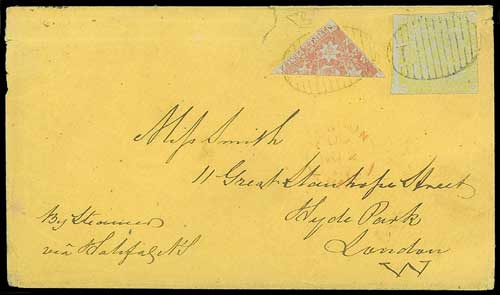 Miss Smith
11 Great Stanhope Street
Hyde Park
London
W
By Steamer
via Halifax NS